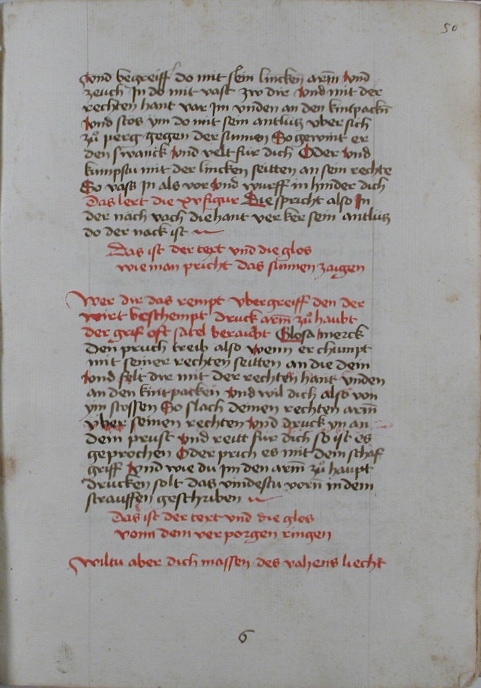 50
Und begreiff do mit sein lincken arm Und
zeuch In do mit vast zw dir Und mit der
rechten hant var Im vnden an den kinpackn
Und stos ym do mit sein antlutz vber sich
zu perg gegen der sunnen So gewint er
den swanck Und velt fur dich Oder Und
kumpstu mit der lincken seitten an sein rechte
So vass In als vor Und wurff in hinder dich
Das lert die figur Die spricht also In
der nach vach die hant ver ker sein antlutz
do der nack ist
Das ist der text vnd die glos
wie man pricht das sunnen zaigen
Wer dir das rempt vbergreiff den der
wirt beschempt druck arm zu haubt
der grif oft satel beraubt Glosa merck
den pruch treib also Wenn er chumpt
mit seiner rechten seitten an die dein
Und felt dir mit der rechten hant vnden
an den kinpacken Und wil dich also von
ym stossen So slach deinen rechten arm
vber seinen rechten Und druck yn an
dein prust Und reitt fur dich so ist es
geprochen Oder prich es mit dem schaf
griff Und wie du Im den arm zu haupt
drucken solt das vindestu vorn in dem
straussen geschriben
Das ist der text vnd die glos
vonn dem ver porgen ringen
Wiltu aber dich massen des vahens liecht
6